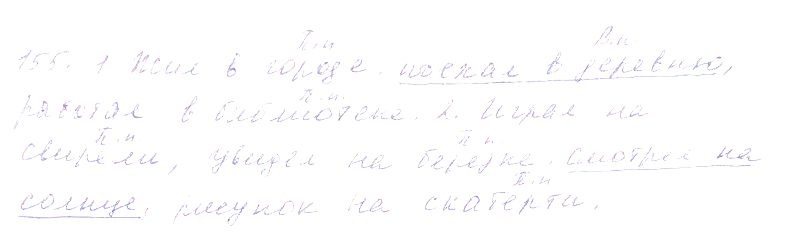 П.п. В.п.
155. 1 Жил в городе. поехал в деревню,
П.п.
работал в библиотеке. 2. Играл на
П.п П.п
свирели, увидел на березке. смотрел на
П.п
солнце, рисунок на скатерти.